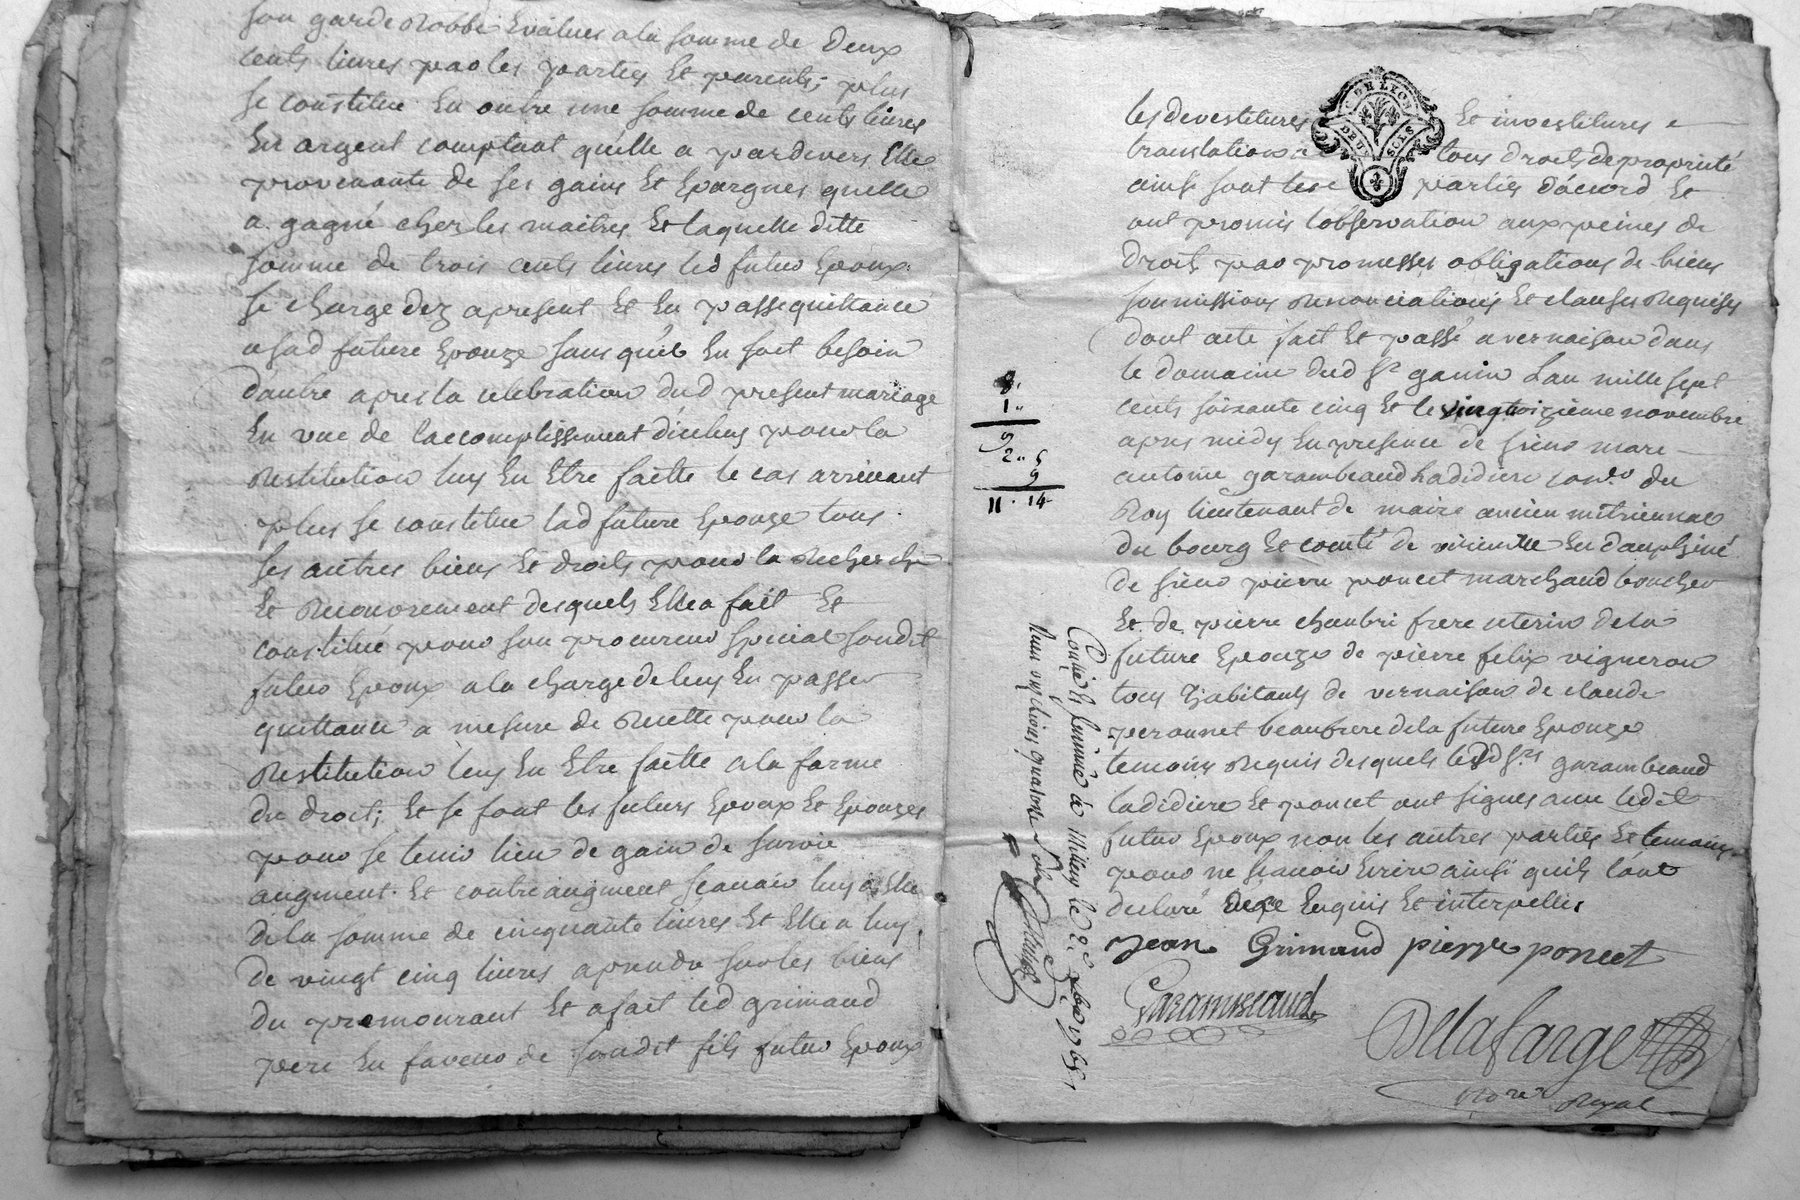 son garderobbe Evalues a la somme de deux
cents livres par les parties Et parents; plus
se constitue En outre une somme de cents livres
En argent comptant qu'elle a pardevers Elle
provenante de ses gains Et Epargnes quelle
a gagné chez les maitres Et laquelle ditte
somme de trois cents livres led futur Epoux
se charge dez apresent Et En passe quittance
a sad future Epouze sans quil En soit besoin
dautre apres la celebration dud present mariage
En vue de laccomplissement dicelluy pour la
Restitution luy En Etre faitte le cas arrivant
plus se constitue lad future Epouze tous
ses autres biens Et droits pour la Recherche
Et Recouvrement desquels Elle a fait Et
constitué pour son procureur special sondit
futur Epoux a la charge de luy En passer
quittance a mesure de Recette pour la
Restitution luy En Etre faitte a la forme
du droit; Et se font les futurs Epoux Et Epouzes
pour se tenir lieu de gain de survie
augment Et contre augment sçauoir luy a Elle
de la somme de cinquante livres Et Elle a luy
de vingt cinq livres a prendre sur les biens
du premourant Et a fait led grimaud
pere En faveur de sondit fils futur Epoux
les devestitures Et investitures
translation tous droits de propriété
ainsi sont les parties d'accord Et
ont promis lobservation aux peines de
droits par promesses obligations de biens
soumissions Renonciations Et clauses Requises
dont acte fait Et passé a vernaison dans
le domaine dud Sr ganin Lan mille sept
cents soixante cinq Et le vingtroizieme novembre
apres midy En presence de sieur marc
antoine garambeaud ladidiere du
Roy lieutenant de maire ancien mitriennal
du bourg Et comté de En dauphiné
de sieur pierre poncet marchand boucher
Et de pierre chambri frere uterin de la
future Epouze de pierre felix vigneron
tous habitants de vernaison de claude
peronnet beaufrere de la future Epouze
temoins Requis desquels lesd Srs garambeaud
ladidiere Et poncet ont signes avec ledit
futur Epoux non les autres parties Et temoins
pour ne sçauoir Ecrire ainsi quils lont
declaré de ce Enquis Et interpellés
Jean Grimaud pierre poncet
Garambeaud
Delafarge
Nore Royal
C. DE LYON
DEUX SOLS
8.
1 "
9
2 " 5
9
11 . 14
Controllé à Millery le
Reçu onze livres quatorze sols